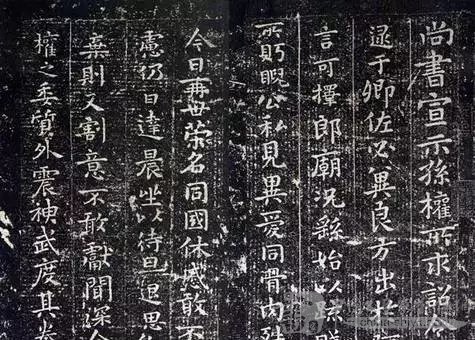 尚書宣示孫權所求詔令
逮于卿佐必冀良方出於阿
言可擇郎廟況繇始以疏賤
所盱睨公私見異愛同骨肉殊
今日再世榮名同國休慼敢不
慮仍日達晨坐以待旦退思
棄則又割意不敢獻聞深念
權之委質外震神武度其拳